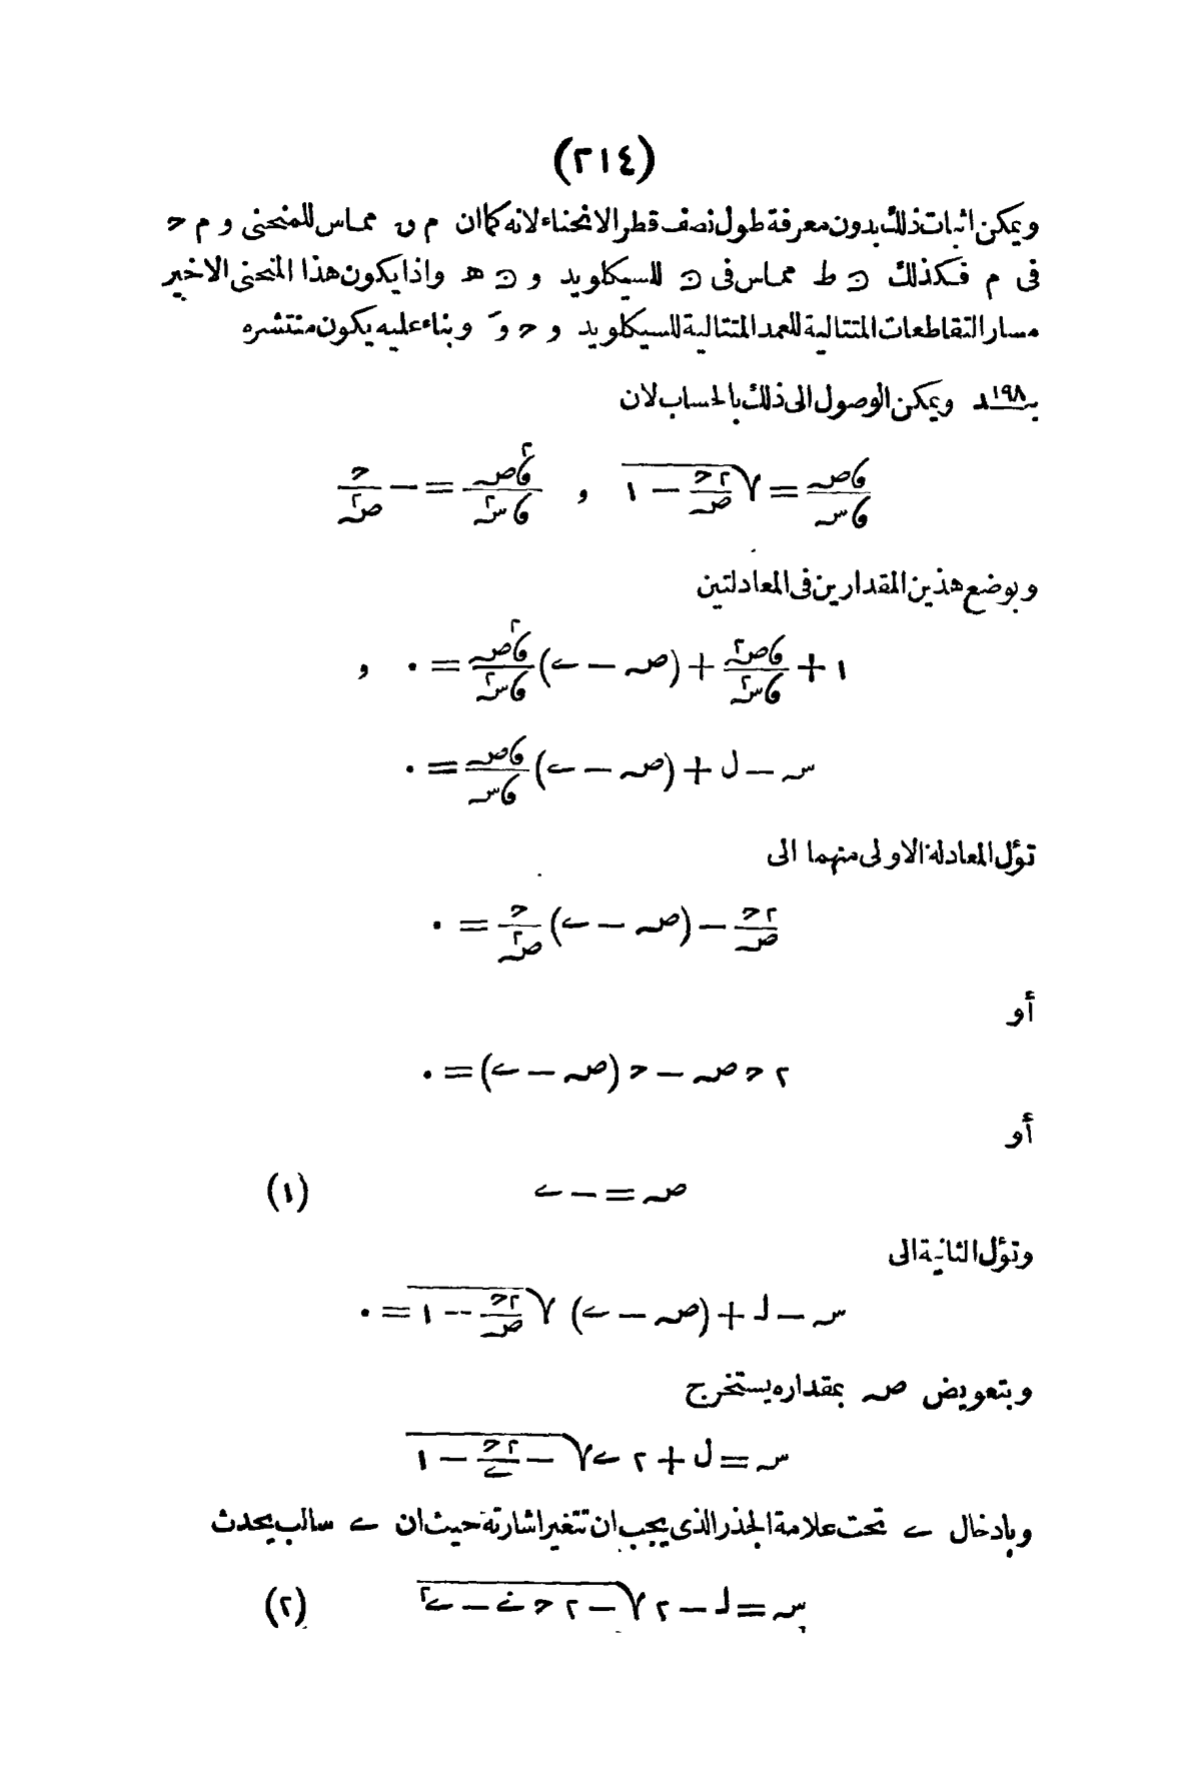 (٢١٤)
ويمكن اثبات ذلك بدون معرفة طول نصف قطر الانحناء لانه كما ان م ں مماس للمنحنى و م ح
فى م فكذلك ط مماس فى للسيكلويد و ه واذا يكون هذا المنحنى الاخير
مسار التقاطعات المتتالية للعمد المتتالية للسيكلويد و ح وَ وبناء عليه يكون منتشره
بند ١٩٨ ويمكن الوصول الى ذلك بالحساب لان
ءص/ءس = √(٢ح/ص − ١) , ء٢ص/ءس٢ = − ح/ص٢
وبوضع هذين المقدارين فى المعادلتين
١ + ءص٢/ءس٢ + (ص − ے) ء٢ص/ءس٢ = ٠ ,
س − ل + (ص − ے) ءص/ءس = ٠
تؤل المعادلة الاولى منهما الى
٢ح/ص − (ص − ے) ح/ص٢ = ٠
أو
٢ ح ص − ح (ص − ے) = ٠
أو
ص = − ے (١)
وتؤل الثانية الى
س − ل + (ص − ے) √(٢ح/ص − ١) = ٠
وبتعويض ص بمقداره يستخرج
س = ل + ٢ ے √(− ٢ح/ے − ١)
وبادخال ے تحت علامة الجذر الذى يجب ان تتغير اشارته حيث ان ے سالب يحدث
س = ل − ٢ √(− ٢ ح ے − ے٢) (٢)